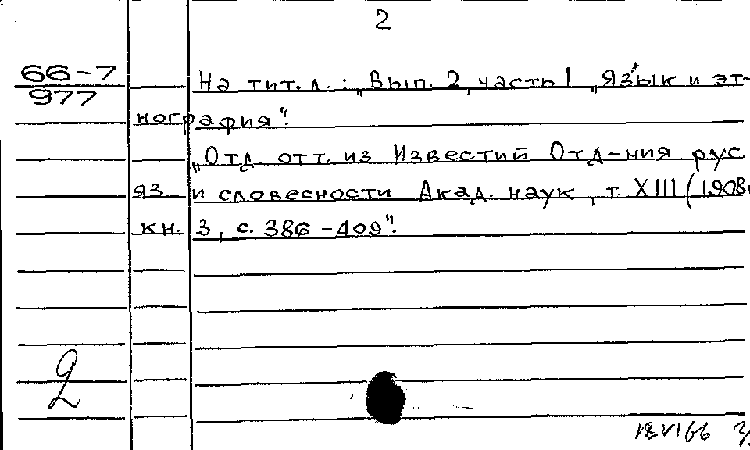 2
66-7
977
На тит. л.: „Вып. 2, часть I „Язык и эт-
нография".
„Отд. отт. из Известий Отд-ния рус.
яз. и словесности Акад. наук, т. XIII (1908),
кн. 3, с. 386-409".
2
18.VI.66